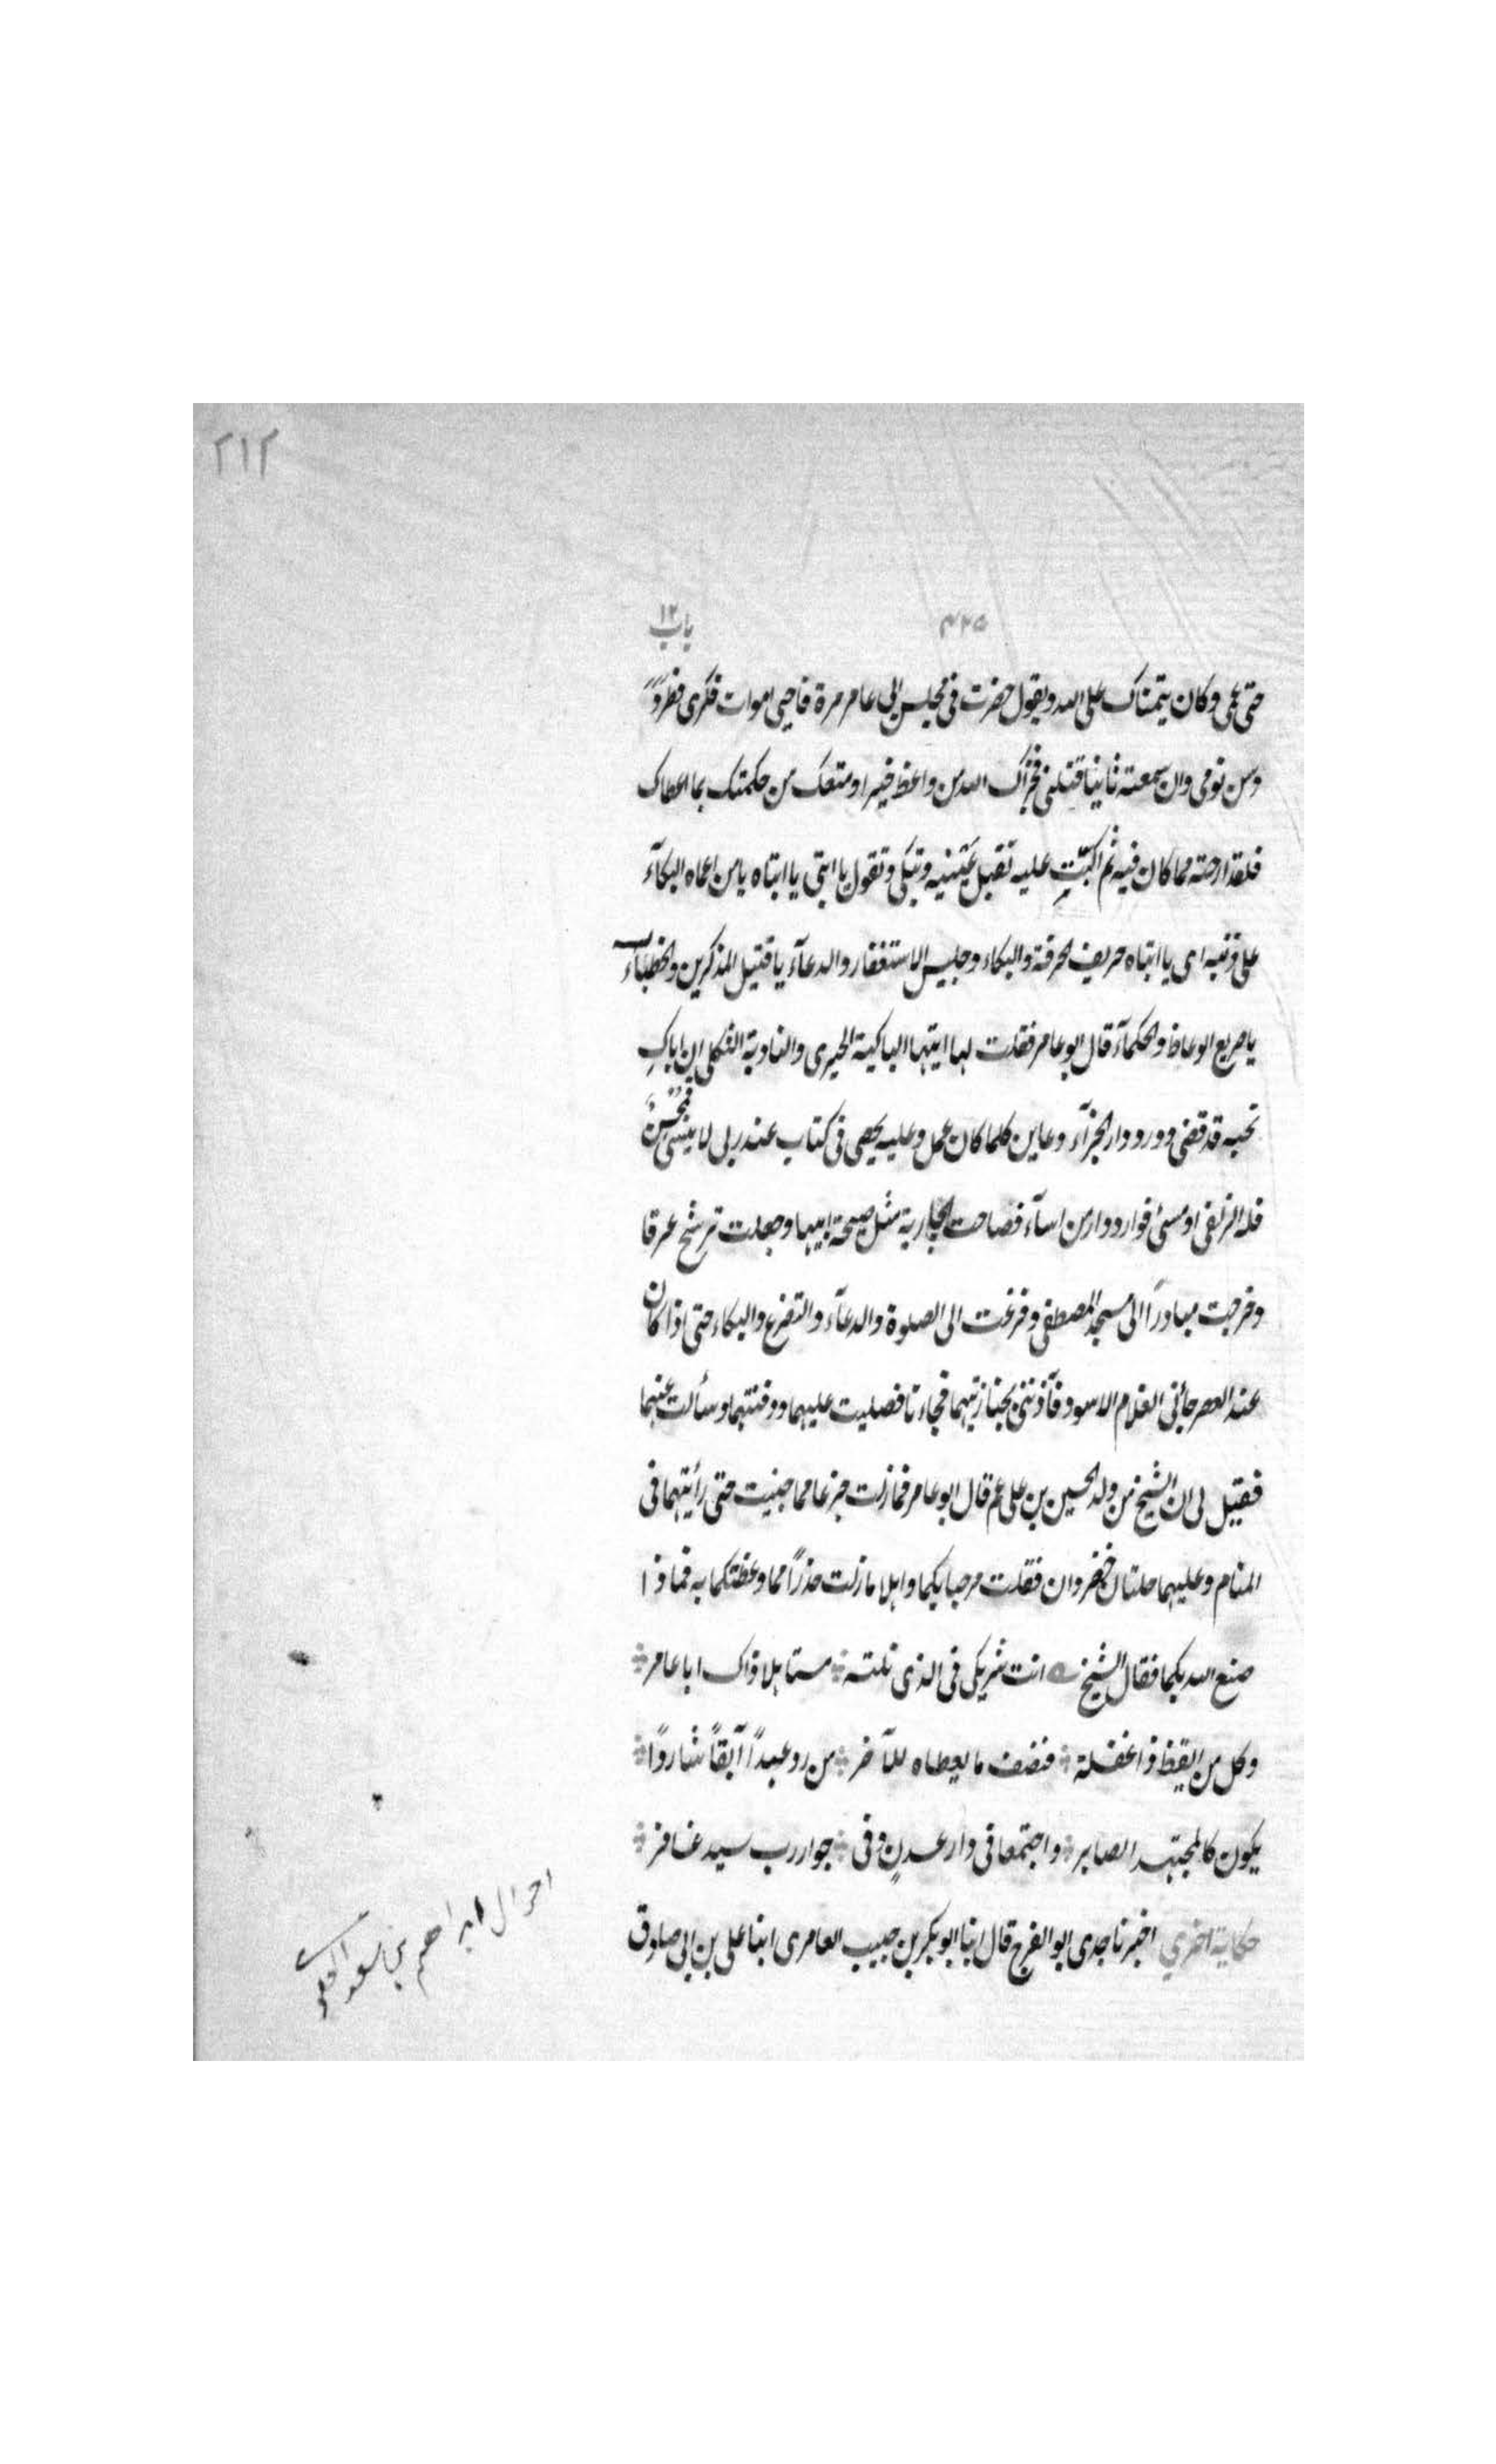 ٢١٢
٤٢٥
باب ١٢
حتى عمى وكان يتمناك على الله ويقول حضرت فى مجلس ابى عامر مرة فاحيى اموات فكرى وطرد
وسن نومى وان سمعته ثانيا قتلنى فجزاك الله من واعظ خيرا ومتعك من حكمتك بما اعطاك
فلقد ارحته مما كان فيه ثم اكبّت عليه تقبل عَيْنيه وتبكى وتقول يا ابتى يا ابتاه يا من اعماه البكآء
على ذنبه اى يا ابتاه حريف الحرقة والبكاء وجليس الاستغفار والدعآء يا قتيل المذكرين والخطبآء
يا صريع الوعاظ والحكمآء قال ابو عامر فقلت لها ايتها الباكية الحيرى والنادبة الثكلى ان اباكِ
نحبه قد قضى وورد دار الجزآء وعاين كلما كان عمل وعليه يحصى فى كتاب عند ربى لا ينسى فمُحْسنٌ
فله الزلفى او مسئ فوارد دار من اسآء فصاحت الجارية مثل صيحة ابيها وجعلت ترشح عرقا
وخرجت مبادراً الى مسجد المصطفى وفزعت الى الصلوة والدعآء والتضرع والبكاء حتى اذا كان
عند العصر جاءنى الغلام الاسود فآذننى بجنازتيهما فجاءنا فصليت عليهما ودفنتهما وسألت عنهما
فقيل لى ان الشيخ من ولد الحسين بن على عم قال ابو عامر فما زلت جزعا مما جنيت حتى رأيتهما فى
المنام وعليهما حلتان خضروان فقلت مرحبا بكما واهلا ما زلت حذراً مما وعظتكما به فما ذا
صنع الله بكما فقال الشيخ انت شريكى فى الذى نلته مستاهلا ذاك ابا عامر
وكل من ايقظ ذا غفلة فنصف ما يعطاه للآخر من رد عبداً آبقاً شارداً
يكون كالمجتهد الصابر واجتمعا فى دار عدنٍ وفى جوار رب سيد غافر
حكاية اخرى اخبرنا جدى ابو الفرج قال ابنا ابو بكر بن حبيب العامرى ابنا على بن ابى صادق
احوال ابراهيم بن سعد